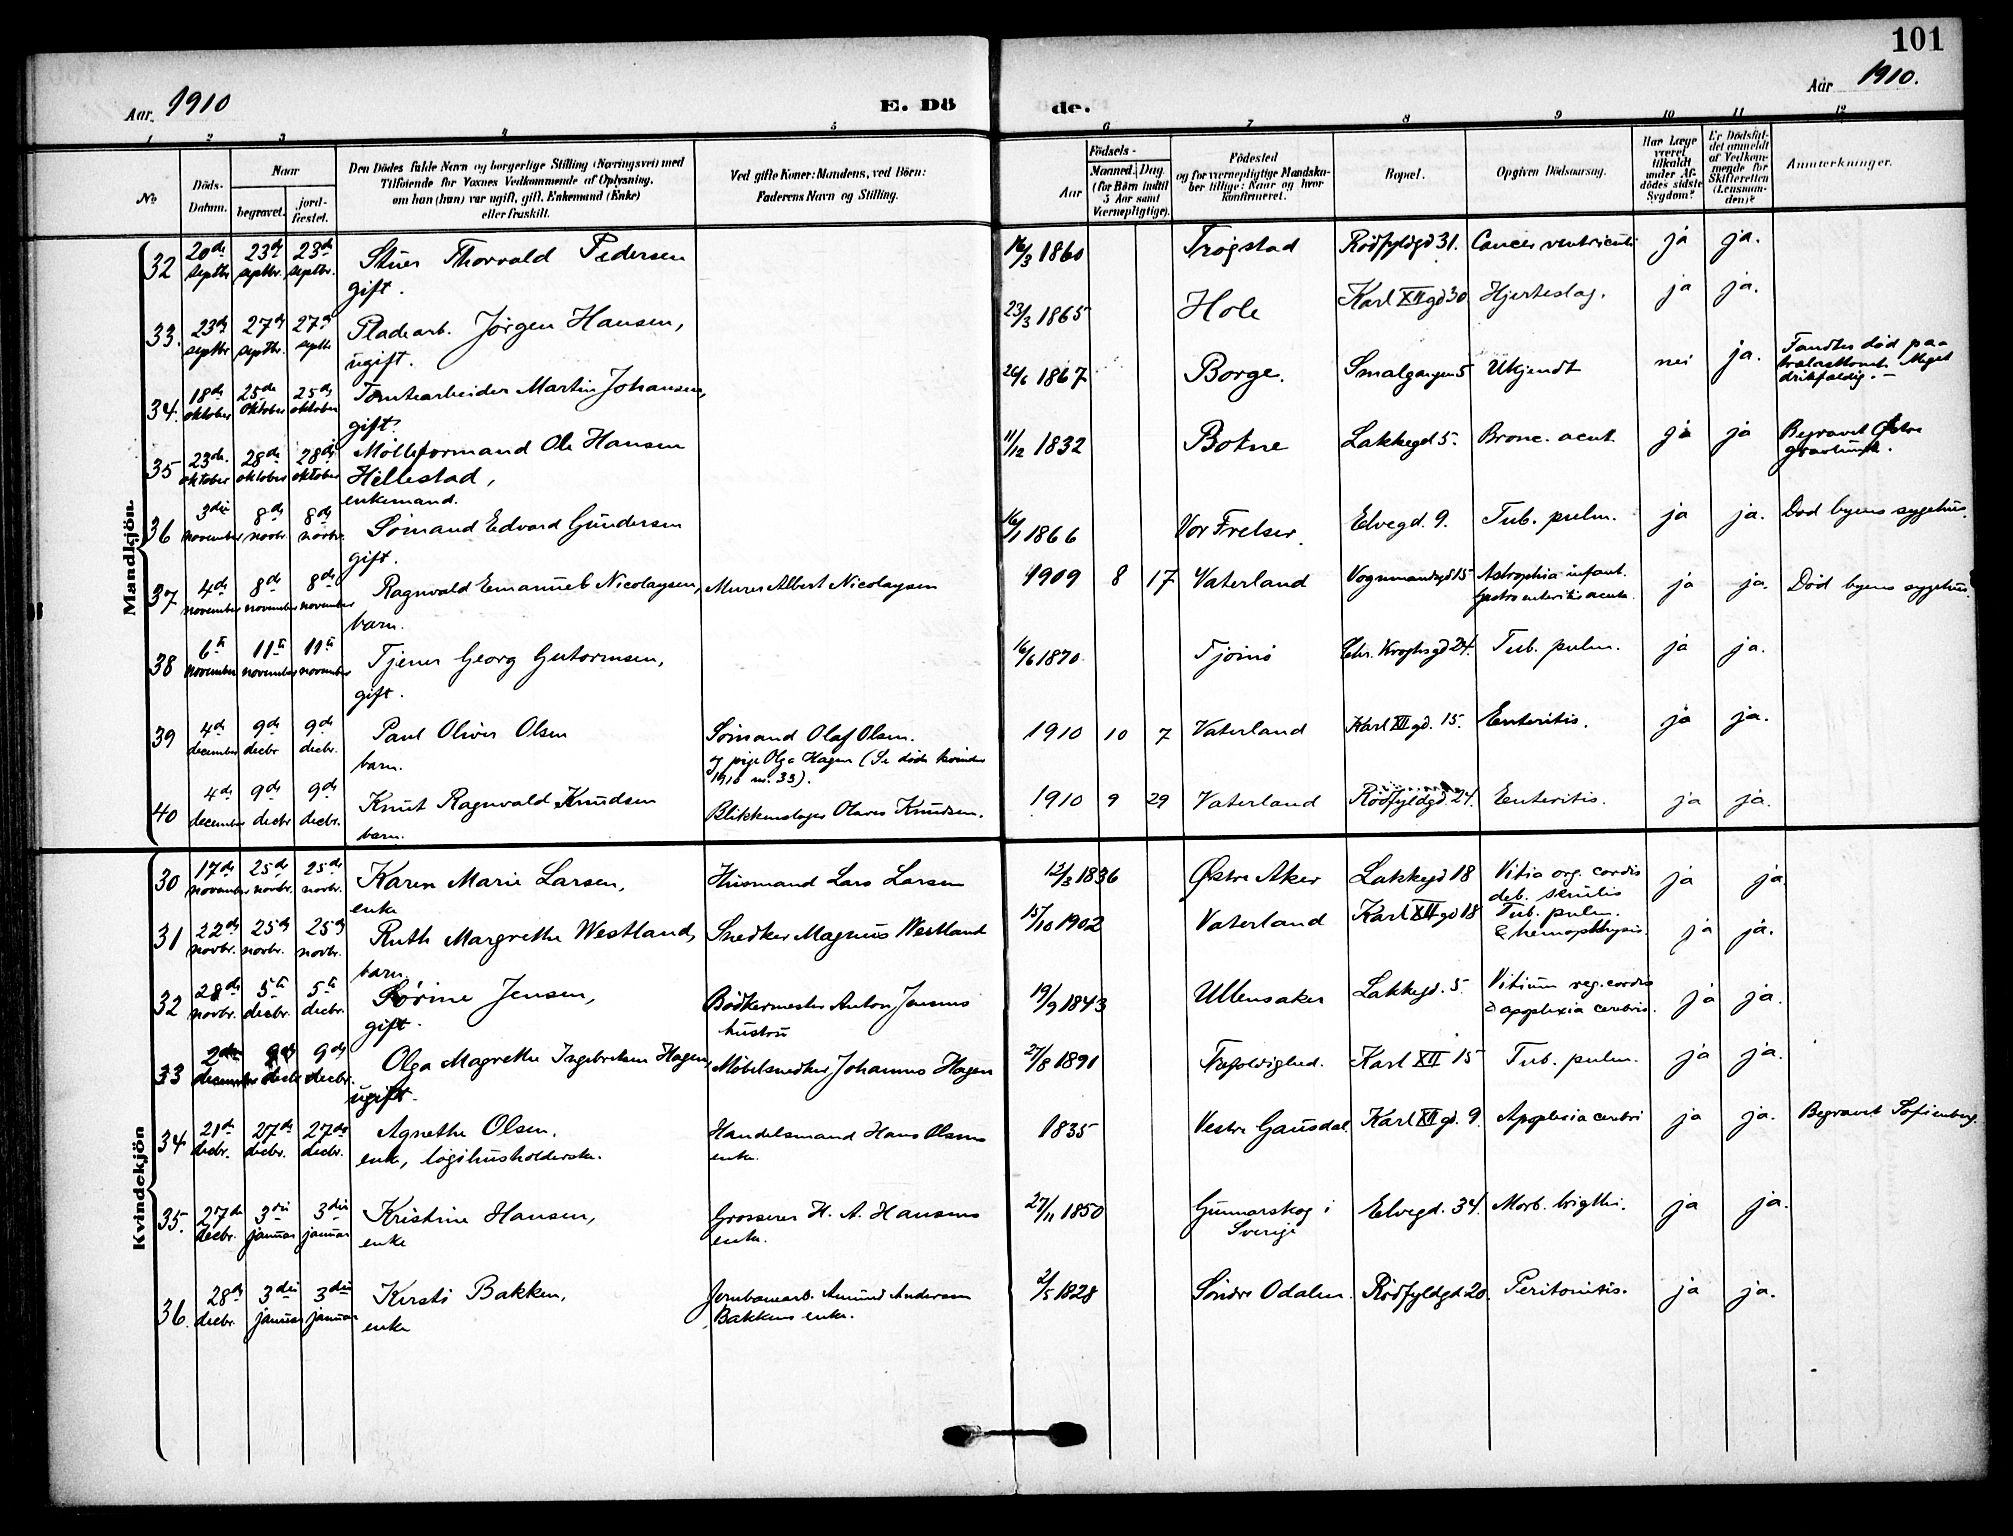 101
Aar 1910
E. Dö
de.
Aar 1910.
1 2 3 4 5 6 7 8 9 10 11 12
No
Döds-
Datum.
Naar
begravet.
jord-
fæstet.
Den Dödes fulde Navn og borgerlige Stilling (Næringsvei) med
Tilföiende for Voxnes Vedkommende af Oplysning,
om han (hun) var ugift, gift, Enkemand (Enke)
eller fraskilt.
Ved gifte Koner: Mandens, ved Börn:
Faderens Navn og Stilling.
Födsels-
Aar
Maaned. Dag.
(for Börn indtil
5 Aar samt
Værnepligtige).
Födested
og for værnepligtige Mandska-
ber tillige: Naar og hvor
konfirmeret.
Bopæl.
Opgiven Dödsaarsag.
Har Læge
været
tilkaldt
under Af-
dödes sidste
Sygdom?
Er Dödsfal-
det anmeldt
af Vedkom-
mende for
Skifteretten
(Lensman-
den)?
Anmærkninger.
Mandkjön.
32 20de septbr 23de septbr. 23de septbr. Stuer Thorvald Pedersen 16/3 1860 Trøgstad Rödfyldgd 31. Cancer ventriculi ja ja.
gift.
33. 23de septbr 27de septbr. 27de septbr Pladearb. Jörgen Hansen, 23/3 1865 Hole Karl XII gd 30 Hjerteslag. ja ja.
ugift.
34. 18de oktober 25de oktober 25de oktober Tomtearbeider Martin Johansen, 26/6 1867 Borge. Smalgangen 5 Ukjendt nei ja. Fandtes død paa
Meget
drikfældig. –
gift.
35 23de oktober 28de oktober 28de oktober Mölleformand Ole Hansen 11/12 1832 Botne Lakkegd 5. Bronc. acut. ja ja Begravet Østre
gravlund.
Hillestad,
enkemand.
36 3die november 8de novbr. 8de novbr. Sömand Edvard Gundersen 16/1 1866 Vor Frelser. Elvegd. 9. Tub. pulm. ja ja. Död byens sygehus.
gift.
37 4de november 8de november 8de november Ragnvald Emanuel Nicolaysen, Murer Albert Nicolaysen 1909 8 17 Vaterland Vognmandsgd 15 Astrophia infant. ja ja. Död byens sygehus.
Gastroenteritis acuta.
barn.
38 6te november 11te november 11te november Tjener Georg Gutormsen, 16/6 1870 Tjømö Chr. Kroghsgd 24. Tub. pulm. ja ja.
gift.
39 4de december 9de decbr 9de decbr. Paul Oliver Olsen Sömand Olaf Olsen. 1910 10 7 Vaterland Karl XII gd. 15. Enteritis. ja ja.
barn. og pige Olga Hagen (Se døde kvinder
1910 nr. 33).
40 4de december 9de decbr 9de decbr. Knut Ragnvald Knudsen Blikkenslager Olaves Knudsen. 1910 9 29 Vaterland Rödfyldgd. 24. Enteritis. ja ja.
barn.
Kvindekjön
30 17de november 25de novbr. 25de novbr. Karen Marie Larsen, Husmand Lars Larsen 12/3 1836 Østre Aker Lakkegd 18 Vitia org. cordis ja ja.
enke deb. senilis
31 22de novbr. 25de novbr. 25de novbr. Ruth Margrethe Westland, Snedker Magnus Westland 15/10 1902 Vaterland Karl XII gd 18 Tub. pulm. ja ja.
& hemopthysis.
barn
32 28de novbr. 5te decbr. 5te decbr. Sörine Jensen, Bödkermester Anton Jensens 19/9 1843 Ullensaker Lakkegd. 5. Vitium reg. cordis ja ja.
gift. hustru & apoplexia cerebris.
33 2den december 9de decbr 9de decbr. Olga Magrethe Ingebretsen Hagen, Möbelsnedker Johannes Hagen 27/8 1891 Trefoldighed. Karl XII 15 Tub. pulm. ja ja.
ugift.
34 21de decbr. 27de decbr. 27de decbr. Agnethe Olsen, Handelsmand Hans Olsens 1835 Vestre Gausdal. Karl XII gd. 9. Apoplexia cerebri ja ja. Begravet Sofienberg.
enke, logihusholderske. enke.
35. 27de decbr. 3die januar 3die januar Kristine Hansen, Grosserer H. A. Hansens 27/11 1850 Gunnarskog i Elvegd. 34. Morb. brigthi. ja ja.
enke enke. Sverige
36. 28de decbr. 3die januar 3die januar Kirsti Bakken, Jernbanearb. Amund Andersen 2/5 1828 Söndre Odalen. Rödfyldgd 20. Peritonitis. ja ja.
enke Bakkens enke.